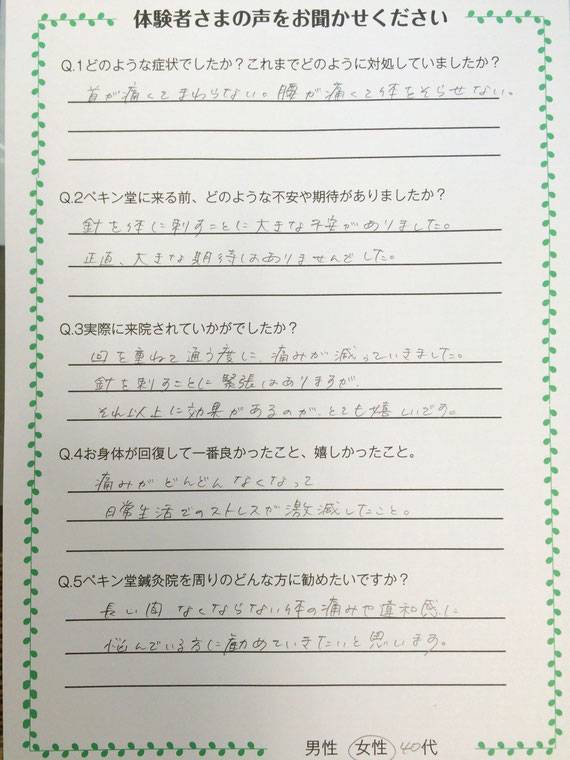 体験者さまの声をお聞かせください
Q.1どのような症状でしたか？これまでどのように対処していましたか？
首が痛くてまわらない。腰が痛くて体をそらせない。
Q.2ペキン堂に来る前、どのような不安や期待がありましたか？
針を体に刺すことに大きな不安がありました。
正直、大きな期待はありませんでした。
Q.3実際に来院されていかがでしたか？
回を重ねて通う度に、痛みが減っていきました。
針を刺すことに緊張はありますが、
それ以上に効果があるのが、とても嬉しいです。
Q.4お身体が回復して一番良かったこと、嬉しかったこと。
痛みがどんどんなくなって
日常生活でのストレスが激減したこと。
Q.5ペキン堂鍼灸院を周りのどんな方に勧めたいですか？
長い間なくならない体の痛みや違和感に
悩んでいる方に勧めていきたいと思います。
男性 女性 40代